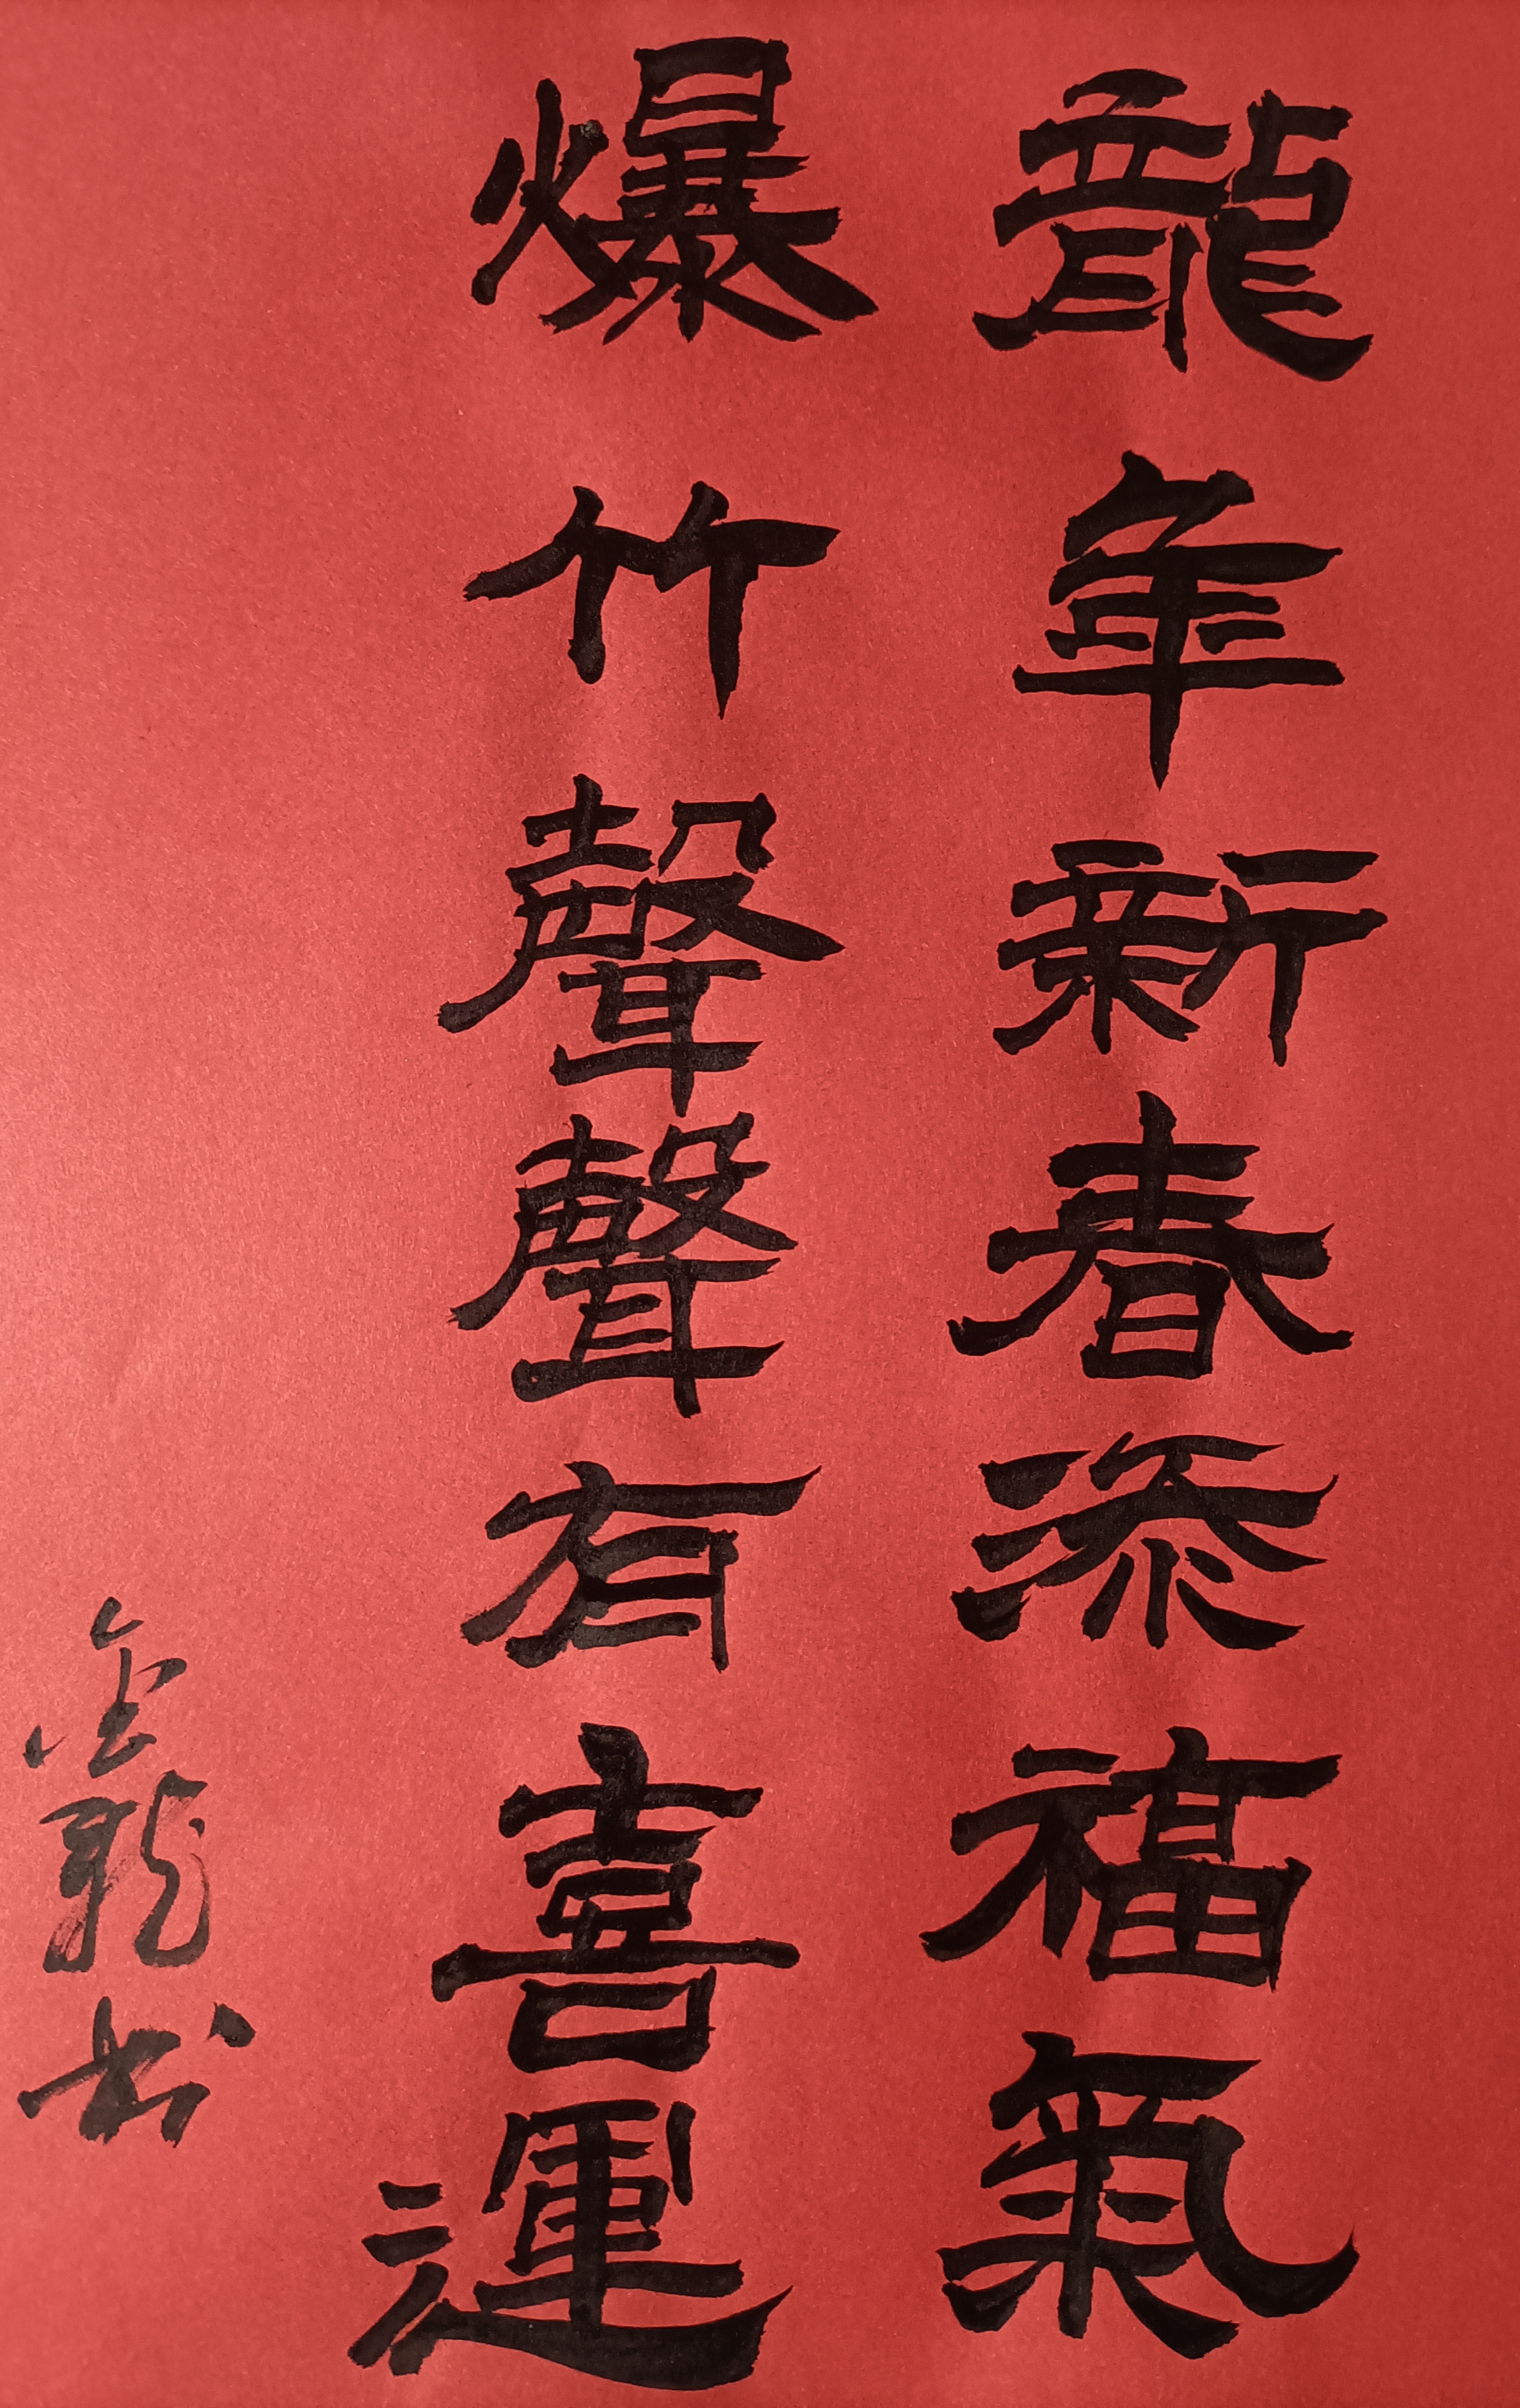 龍年新春添福氣
爆竹聲聲有喜運
金龍书